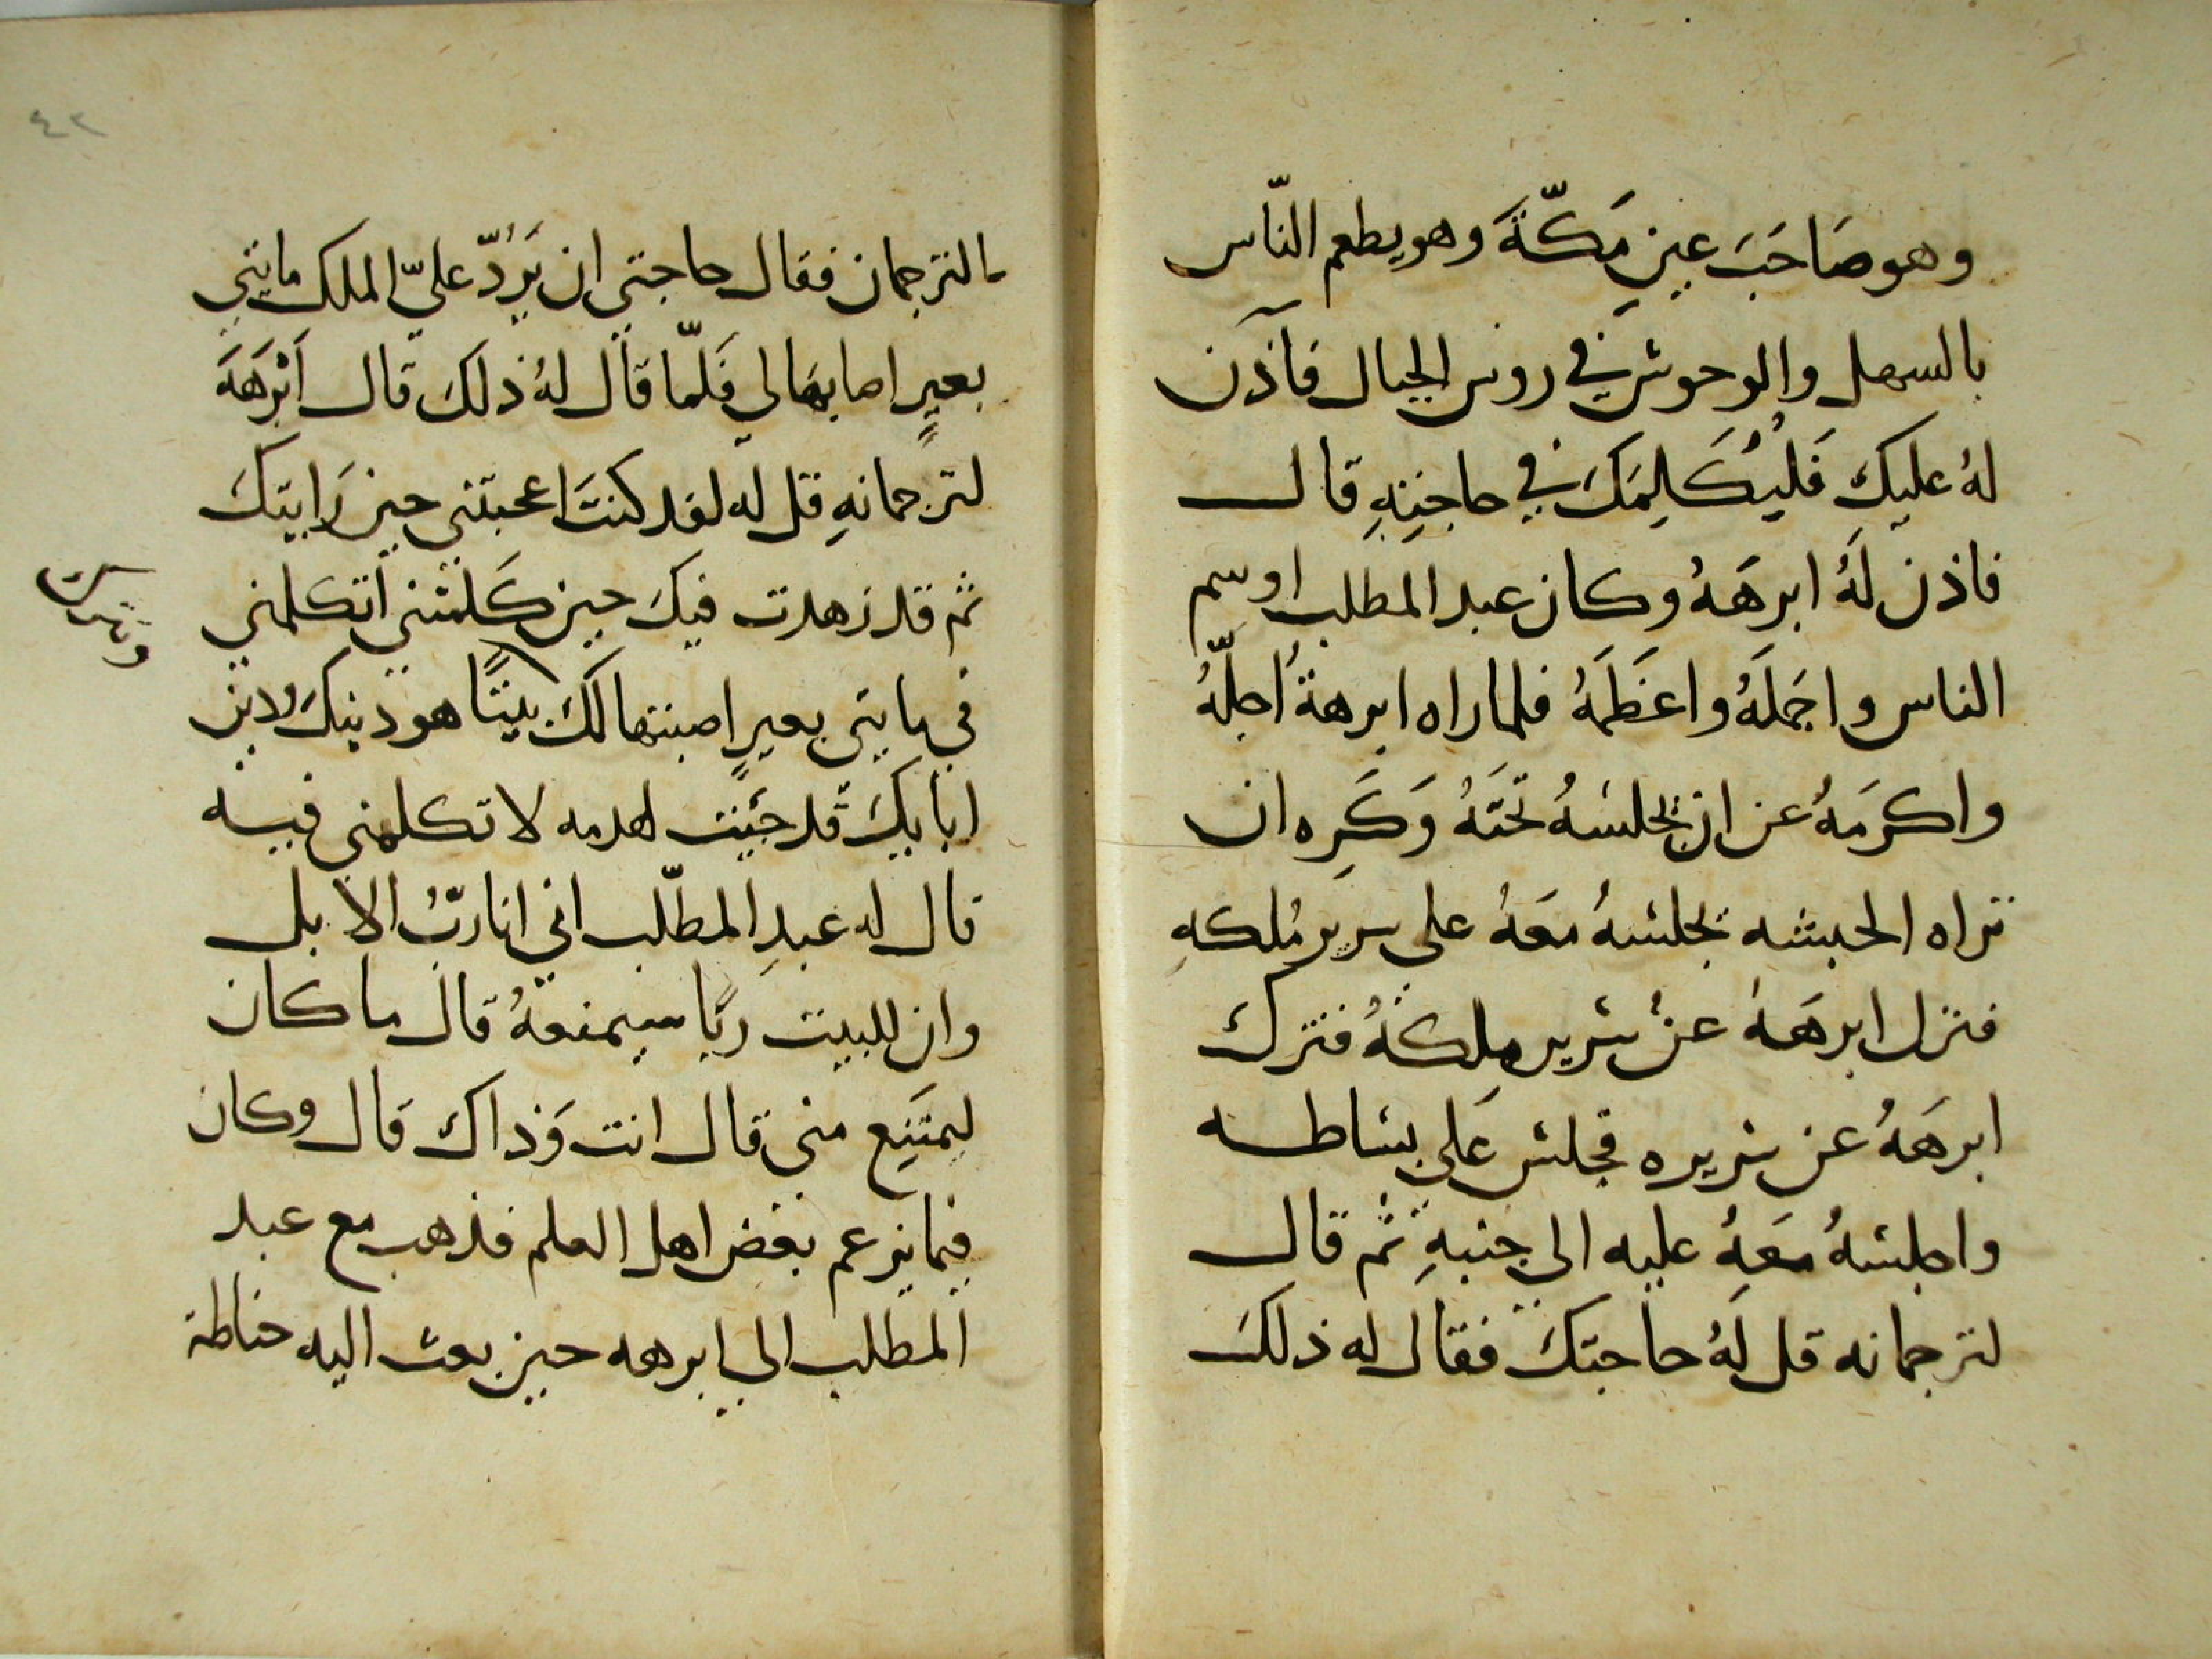 وهو صَاحَبَ عِيرِ مَكّةَ وهو يطعم النّاس
بالسهل والوحوش في روس الجبال فآذن
لهُ عليك فَليُكَلِمَكَ في حاجتهِ قال
فاذن لَهُ ابرهَهُ وكان عبد المطلب اوسم
الناس واجمَلَهُ واعَظَمَهُ فلما راه ابرهةُ اجلّهُ
واكرمَهُ عن ان يجلسَهُ تحَتَهُ وَكَرِه ان
تراه الحبشه يجلسهُ معَهُ على سرير مُلكهِ
فنزل ابرهَهُ عن سرير مِلكهُ فترك
ابرهَهُ عن سريره فجلس عَلى بساطه
واجلسهُ معَهُ عليه الى جنبهِ ثم قال
لترجمانه قل لَهُ حاجتكَ فقال له ذلكَ
الترجمان فقال حاجتي ان يَرُدّ عليّ الملك مايتي
بعيرٍ اصابهَا لي فَلمّا قال لهُ ذلكَ قال اَبْرَهَهَ
لترجمانهِ قل له لقد كنتَ اعجبتني حين رَايتكَ
ثم قد زهدت فيكَ حين كَلمتني اَتكلمني
في مايتي بعيرٍ اصبتها لكَ بيتًا هو دينكَ ودين
ابايكَ قد جَيت لهدمه لا تكلمني فيه
وتترك
قال له عبدِ المطلّب اني انا ربُّ الابل
وان للبيت ربًا سيمنعهُ قال ما كان
ليمتَنِع مني قال انت وَذاك قال وكان
فيما يزعم بعض اهل العلم فذهب مع عبد
المطلب الى ابرهه حين بعث اليه حناطة
٤٢